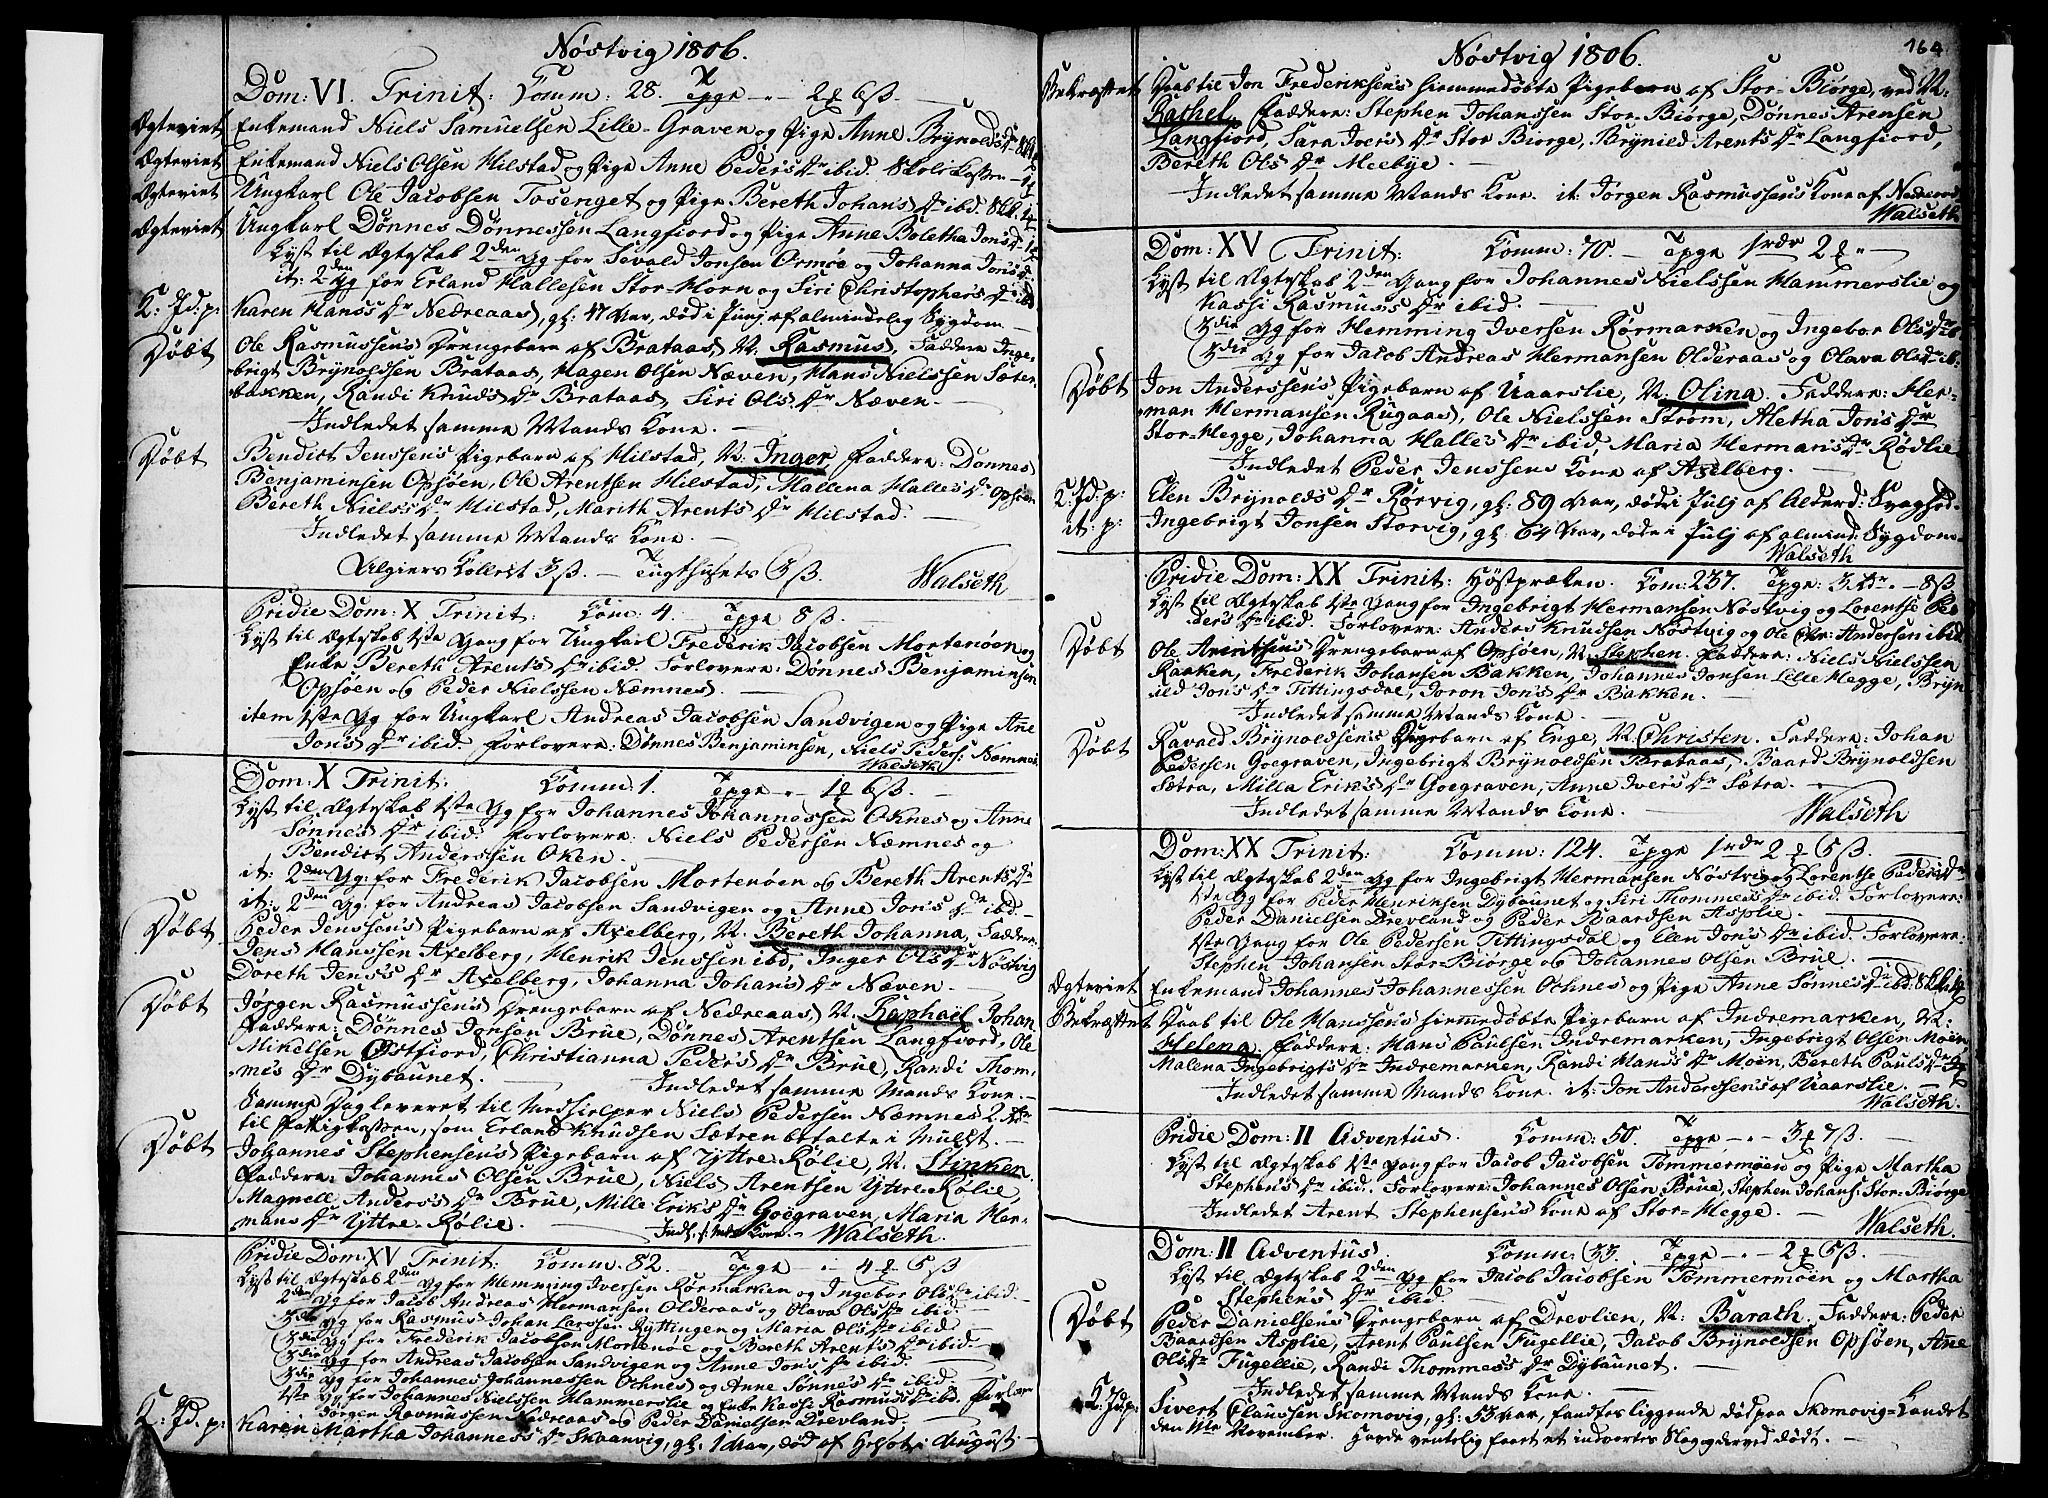 Nöstvig 1806.
Dom: VI. Trinit: Comm: 28. Tpge
Ægteviet Enkemand Niels Samuelsen Lille-Graven og Pige Anne Brynolds Dr
Ægteviet Enkemand Niels Olsen Hilstad og Pige Anne Peders Dr ibid.
Ægteviet Ungkarl Ole Jacobsen Tosenget og Pige Bereth Johans Dr ibid.
Ægteviet Ungkarl Dönnes Dönnessen Langfiord og Pige Anne Boletha Jons D
Lyst til Ægteskab 2den Gg for Sevald Jonsen Ormöe og Johanna Jons
it: 2den Gg for Erland Hallesen Stor-Horn og Siri Christophers Dr ibd.
K: Jd: p: Karen Hanss Dr Nedreaas, gl: 47 Aar, död i Junj af almindelig Sygdom
Döbt Ole Rasmussens Drengebarn af Brataas, N. Rasmus. Faddere Inge-
brigt Brynoldsen Brataas, Hagen Olsen Næven, Hans Nielssen Sæter-
bakken, Randi Knuds Dr Brataas, Siri Ols Dr Næven.
Indledet samme Mands Kone.
Döbt Bendict Jenssens Pigebarn af Hilstad, N. Inger Faddere: Dönnes
Benjaminsen Opsöen, Ole Arentsen Hilstad, Mallena Halles Dr Opsöen
Bereth Niels Dr Hilstad, Marith Arents Dr Hilstad.
Indledet samme Mands Kone.
Algiers Collect 3ß. Tugthusets 6ß. Walseth
Pridie Dom: X Trinit: Com: 4. Tpge 8ß.
Lyst til Ægteskab 1ste Gang for Ungkarl Frederik Jacobsen Mortenöen og
Enke Bereth Arents Dr ibid. Forlovere: Dönnes Benjaminsen
Opsöen og Peder Nielssen Næmnes.
item 1ste Gg for Ungkarl Andreas Jacobsen Sandvigen og Pige Anne
Jons Dr ibid. Forlovere: Dönnes Benjaminsen, Niels Peders: Næmnes
Walseth
Dom: X Trinit: Comm: 1. Tpge
Lyst til Ægteskab 1ste Gg for Johannes Johannessen Oknes og Anne
Sönnes Dr ibid. Forlovere: Niels Pedersen Næmnes og
Bendict Anderssen Oken.
it: 2den Gg: for Frederik Jacobsen Mortenöen og Bereth Arents Dr
it: 2den Gg: for Andreas Jacobsen Sandvigen og Anne Jons Dr ibd.
Döbt Peder Jenssens Pigebarn af Axelberg, N. Bereth Johanna, Faddere:
Jens Hanssen Axelberg, Henrik Jenssen ibd, Inger Ols Dr Nöstvig
Doreth Jens's Dr Axelberg, Johanna Johans Dr Næven.
Döbt Jörgen Rasmussens Drengebarn af Nedreaas, N. Raphael Johan
Faddere: Dönnes Jonsen Brue, Dönnes Arentsen Langfiord, Ole
Mikelsen Östfiord, Christianna Peders Dr Brue, Randi Thom-
mes Dr Dybaunet. Indledet samme Mands Kone.
Samme Dag leveret til Medhielper Niels Pedersen Næmnes 2
til Fattigkassen, som Erland Knudsen Sætren betalte i Mulct.
Döbt Johannes Stephensens Pigebarn af Yttre-Rölie, N. Stinken
Faddere: Johannes Olsen Brue, Niels Arentsen Yttre Rölie
Magnell Anders's Dr Brue, Mille Eriks Dr Goegraven, Maria Her-
mans Dr Yttre-Rölie. Indl. s: Mds Kone. Walseth.
Pridie Dom: XV Trinit: Comm: 82. Tpge
Lyst til Ægteskab 2den Gg for Hemming Iversen Rörmarken og Ingebor Ols Dr ibid.
2den Gg for Jacob Andreas Hermansen Olderaas og Olava Ols Dr ibid.
3die Gg for Rasmus Johan Larssen Ryttingen og Maria Ols Dr ibid.
3die Gg for Frederik Jacobsen Mortenöe og Bereth Arents Dr ibid.
3die Gg for Andreas Jacobsen Sandvigen og Anne Jons Dr ibid.
3die Gg for Johannes Johannessen Ochnes og Anne Sönnes Dr ibid.
1ste Gg for Johannes Nielssen Hammerslie og Enke Kassi Rasmuss Dr ibd. Forlov:
Jörgen Rasmussen Nedreaas og Peder Danielsen Drevland.
K: Jd. p: Karen Martha Johannes's Dr Skaanvig, gl: 1 Aar, död af i August
164
Nöstvig 1806.
Bekræftet Daab til Jon Frederiksens hiemmedöbte Pigebarn af Stor-Biörge, ved N.
Rathel, Faddere: Stephen Johanssen Stor-Biörge, Dönnes Arensen
Langfiord, Sara Ivers Dr Stor Biorge, Brynild Arents Dr Langfiord,
Bereth Ols Dr Meebye.
Indledet samme Mands Kone. it: Jörgen Rasmussens Kone af Nedreaas
Walseth
Dom: XV Trinit: Comm: 70. Tpge
Lyst til Ægteskab 2den Gang for Johannes Nielssen Hammerslie og
Kassi Rasmuss Dr ibid.
3die Gg for Hemming Iversen Rörmarken og Ingebor Ols Dr
3die Gg for Jacob Andreas Hermansen Olderaas og Olava Ols Dr ib:
Döbt Jon Anderssens Pigebarn af Uaarslie, N. Olina. Faddere: Her-
man Hermansen Rugaas, Ole Nielssen Ström, Aletha Jons Dr
Stor-Hegge, Johanna Halles Dr ibid, Maria Hermans Dr Rödlie
Indledet Peder Jenssens Kone af Axelberg.
K. Jd: p: Elen Brynolds Dr Rörvig, gl: 89 Aar, död i Julj af Alderd: Svaghed.
it: p: Ingebrigt Jonsen Storvig, gl: 64 Aar, död i Julj af almind: Sygdom
Walseth
Pridie Dom: XX Trinit: Höstpræken. Com: 237. Tpge:
Lyst til Ægteskab 1ste Gang for Ingebrigt Hermansen Nöstvig og Lorentse Pe-
ders Dr ibid. Forlovere: Anders Knudsen Nöstvig og Ole Chr: Andersen ibid
Döbt Ole Arentsens Drengebarn af Opsöen, N. Stephen. Faddere: Niels Nielssen
Raaken, Frederik Johansen Bakken, Johannes Jonsen Lille Hegge, Bryn
ild Jons Dr Tittingsdal, Joron Jons Dr Bakken.
Indledet samme Mands Kone.
Döbt Ravald Brynoldsens Pigebarn af Enge, N. Christen. Faddere: Johan
Pedersen Goegraven, Ingebrigt Brynoldsen Brataas, Baard Brynoldsen
Sætra, Milla Eriks Dr Goegraven, Anne Ivers Dr Sætra.
Indledet samme Mands Kone. Walseth
Dom: XX Trinit: Comm: 124. Tpge
Lyst til Ægteskab 2den Gg for Ingebrigt Hermansen Nöstvig og Lorentse Peders Dr
1ste Gg for Peder Henriksen Dybaunet og Siri Thommess Dr ibid. Forlovere:
Peder Danielsen Drevland og Peder Baardsen Asplie.
1ste Gang for Ole Pedersen Tittingsdal og Elen Jons Dr ibid. Forlovere:
Stephen Johansen Stor-Biörge og Johannes Olsen Brue.
Ægteviet Enkemand Johannes Johannessen Ochnes og Pige Anne Sönnes Dr ibd:
Bekræftet Daab til Ole Hanssens hiemmedöbte Pigebarn af Indremarken, N.
Helena. Faddere: Hans Paulsen Indremarken, Ingebrigt Olsen Moen
Malena Ingebrigts Dr Indremarken, Randi Hans's Dr Moen, Bereth Pauls Dr
Indledet samme Mands Kone. it: Jon Anderssens af Uaarslie.
Walseth.
Pridie Dom: II Adventus. Comm: 50. Tpge
Lyst til Ægteskab 1ste Gang for Jacob Jacobsen Tömmermöen og Pige Martha
Stephens Dr ibid. Forlovere: Johannes Olsen Brue, Stephen Johans: Stor-Biörge
Indledet Arent Stephensens Kone af Stor-Hegge.
Walseth.
Dom: II Adventus. Comm: 33. Tpge
Lyst til Ægteskab 2den Gg for Jacob Jacobsen Tömmermöen og Martha
Stephens Dr ibid
Döbt Peder Danielsens Drengebarn af Drevlien, N: Barath. Faddere: Peder
Baardsen Asplie, Arent Paulsen Fugellie, Jacob Brynolsen Opsöen, Anne
Ols Dr Fugellie, Randi Thommess Dr Dybaunet.
Indledet samme Mands Kone.
K: Jd: p: Sivert Claussen Skomovig, gl: 53 Aar, fandtes liggende död paa Skomovig-Landet
den November. Havde ventelig faaet et indvortes Slag og derved dödt.